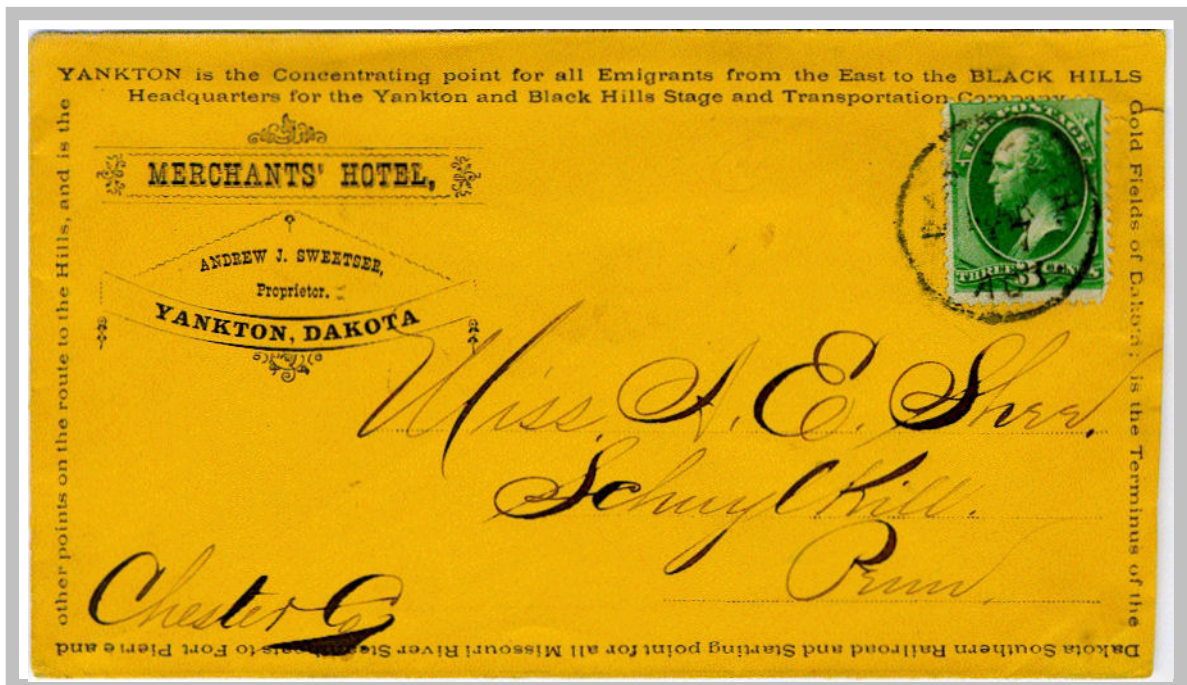 YANKTON is the Concentrating point for all Emigrants from the East to the BLACK HILLS
Headquarters for the Yankton and Black Hills Stage and Transportation Company
Gold Fields of Dakota; is the Terminus of the
Dakota Southern Railroad and Starting point for all Missouri River Steamboats to Fort Pierre and
other points on the route to the Hills, and is the
MERCHANTS' HOTEL,
ANDREW J. SWEETSER,
Proprietor.
YANKTON, DAKOTA
U.S. POSTAGE
THREE 3 CENTS
Miss. A. E. Sherr.
Schuylkill.
Penn.
Chester Co